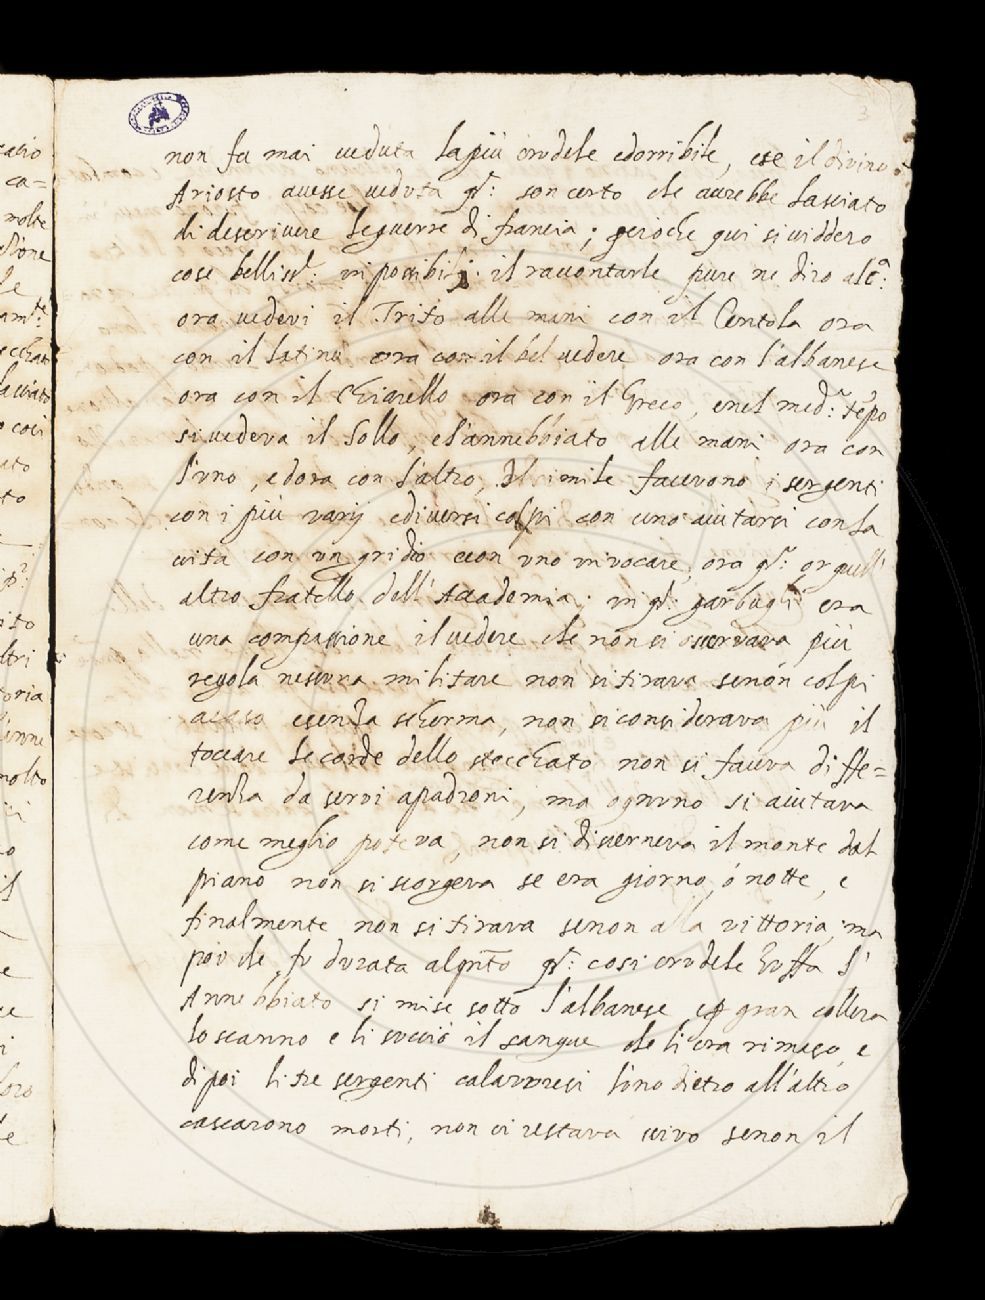 non fu mai ueduta la più crudele edorribile, ese il divino
Ariosto auesse ueduta qt: son certo che aurebbe lasciato
di descriuere le guerre di francia; peroche qui si viddero
cose belliss.e: inpossibili: il raccontarle pure ne diro alca:
ora uedevi il Trito alle mani con il Centola ora
con il latino ora con il bel uedere ora con l'albanese
ora con il Chiarello ora con il Greco, enel med.o tēpo
si uedeva il Sollo, el'annebbiato alle mani ora con
l'uno, edora con l'altro, Il simile facevono i sergenti
con i più varij ediuersi colpi con uno aiutarsi con la
uita con un grido econ uno invocare, ora qt: or quell'
altro fratello dell'Accademia; in qt: garbugli era
una compassione il uedere che non si osservava più
regola nessuna militare non si tirava senon colpi
acaso esenza scherma, non si considerava più il
toccare le corde dello steccato non si faceva diffe=
renza da servi apadroni, ma ognuno si aiutava
come meglio poteva, non si discerneva il monte dal
piano non si scorgeva se era giorno, ó notte, e
finalmente non si tirava senon alla vittoria, ma
poi che fu durata alqnto qt: cosi crudele Zuffa l'
Annebbiato si mise sotto l'albanese e gran collera
lo scanno e li succiò il sangue che li era rimaso, e
dipoi li tre sergenti calavresi l'uno dietro all'altro
cascarono morti, non vi restava vivo senon il